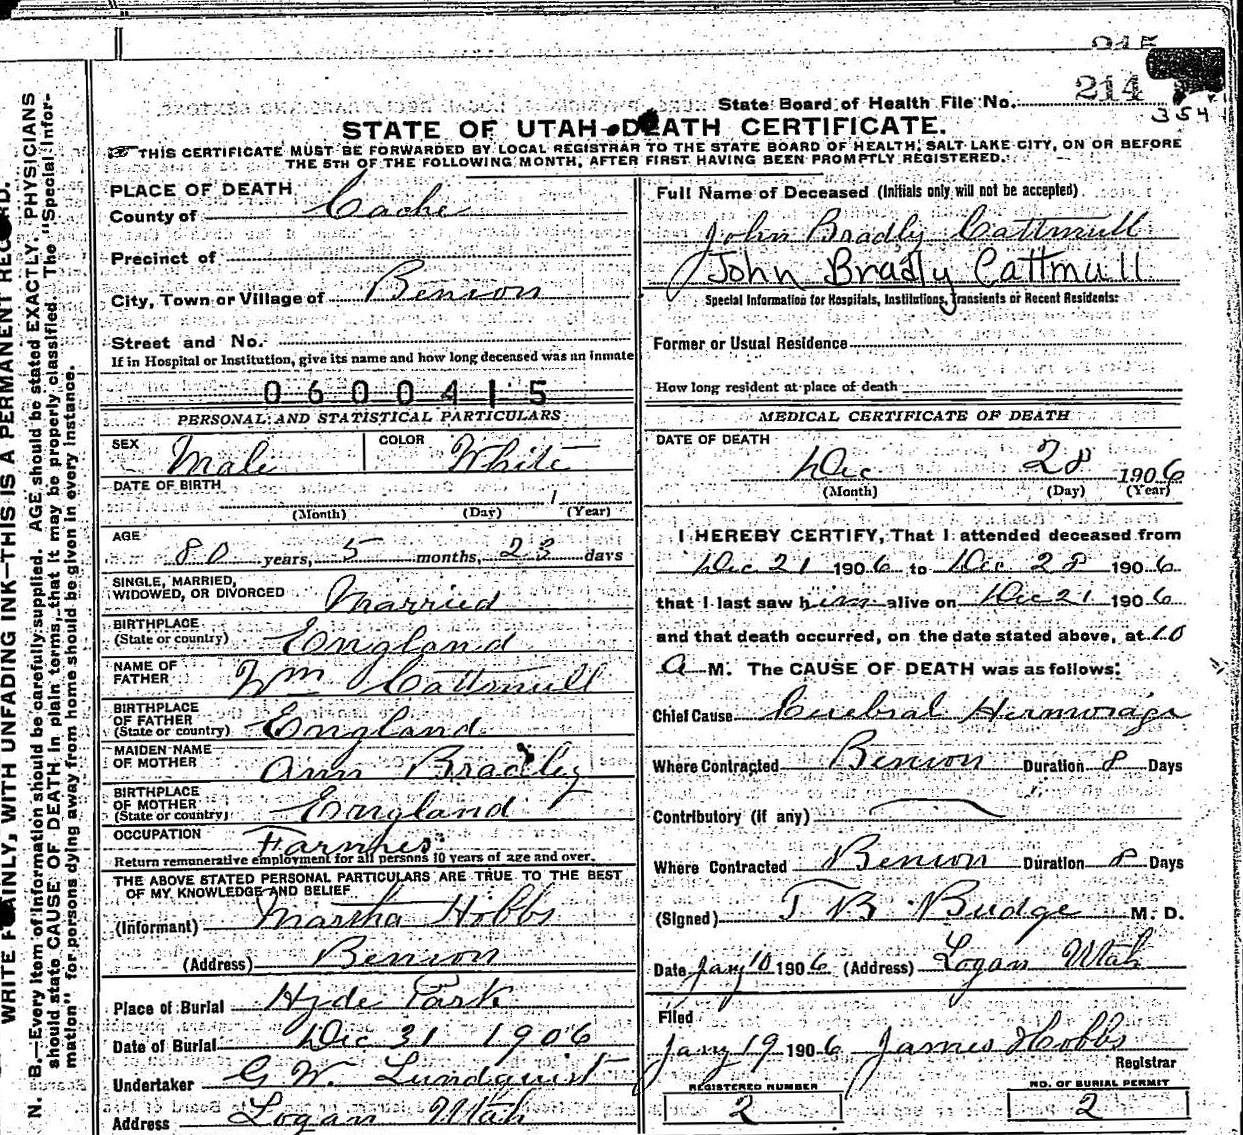 214
354
State Board of Health File No.
STATE OF UTAH-DEATH CERTIFICATE.
THIS CERTIFICATE MUST BE FORWARDED BY LOCAL REGISTRAR TO THE STATE BOARD OF HEALTH, SALT LAKE CITY, ON OR BEFORE
THE 5TH OF THE FOLLOWING MONTH, AFTER FIRST HAVING BEEN PROMPTLY REGISTERED.
WRITE PLAINLY, WITH UNFADING INK—THIS IS A PERMANENT RECORD.
N. B.—Every item of information should be carefully supplied. AGE should be stated EXACTLY. PHYSICIANS
should state CAUSE OF DEATH in plain terms, that it may be properly classified. The "Special Infor-
mation" for persons dying away from home should be given in every instance.
PLACE OF DEATH
County of Cache
Precinct of
City, Town or Village of Benson
Street and No.
If in Hospital or Institution, give its name and how long deceased was an inmate
0600415
PERSONAL AND STATISTICAL PARTICULARS
SEX Male COLOR White
DATE OF BIRTH
1
(Month) (Day) (Year)
AGE
80 years, 5 months, 23 days
SINGLE, MARRIED,
WIDOWED, OR DIVORCED Married
BIRTHPLACE
(State or country) England
NAME OF
FATHER Wm Cattmull
BIRTHPLACE
OF FATHER
(State or country) England
MAIDEN NAME
OF MOTHER Ann Bradley
BIRTHPLACE
OF MOTHER
(State or country) England
OCCUPATION Farmer
Return remunerative employment for all persons 10 years of age and over.
THE ABOVE STATED PERSONAL PARTICULARS ARE TRUE TO THE BEST
OF MY KNOWLEDGE AND BELIEF
(Informant) Martha Hobbs
(Address) Benson
Place of Burial Hyde Park
Date of Burial Dec 31 1906
Undertaker G W. Lundquist
Address Logan Utah
Full Name of Deceased (Initials only will not be accepted)
John Bradly Cattmull
John Bradly Cattmull
Special Information for Hospitals, Institutions, Transients or Recent Residents:
Former or Usual Residence
How long resident at place of death
MEDICAL CERTIFICATE OF DEATH
DATE OF DEATH
Dec 28 1906
(Month) (Day) (Year)
I HEREBY CERTIFY, That I attended deceased from
Dec 21 1906 to Dec 28 1906
that I last saw him alive on Dec 21 1906
and that death occurred, on the date stated above, at 10
a M. The CAUSE OF DEATH was as follows:
Chief Cause Cerebral Hermorage
Where Contracted Benson Duration 8 Days
Contributory (if any)
Where Contracted Benson Duration 8 Days
(Signed) T B Budge M. D.
Date Jany 10 1906 (Address) Logan Utah
Filed
Jany 19 1906 James Hobbs
Registrar
REGISTERED NUMBER
2
NO. OF BURIAL PERMIT
2